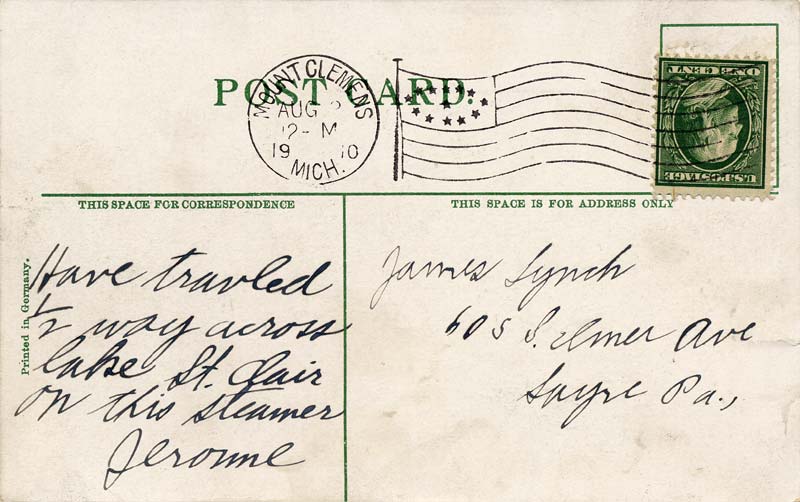 POST CARD.
MOUNT CLEMENS
AUG
12- M
19 10
MICH.
ONE CENT
U.S. POSTAGE
THIS SPACE FOR CORRESPONDENCE
THIS SPACE IS FOR ADDRESS ONLY
Printed in Germany.
Have travled
1/2 way across
lake St. Clair
on this steamer
Jerome
James Lynch
605 S. Elmer Ave
Sayre Pa.,